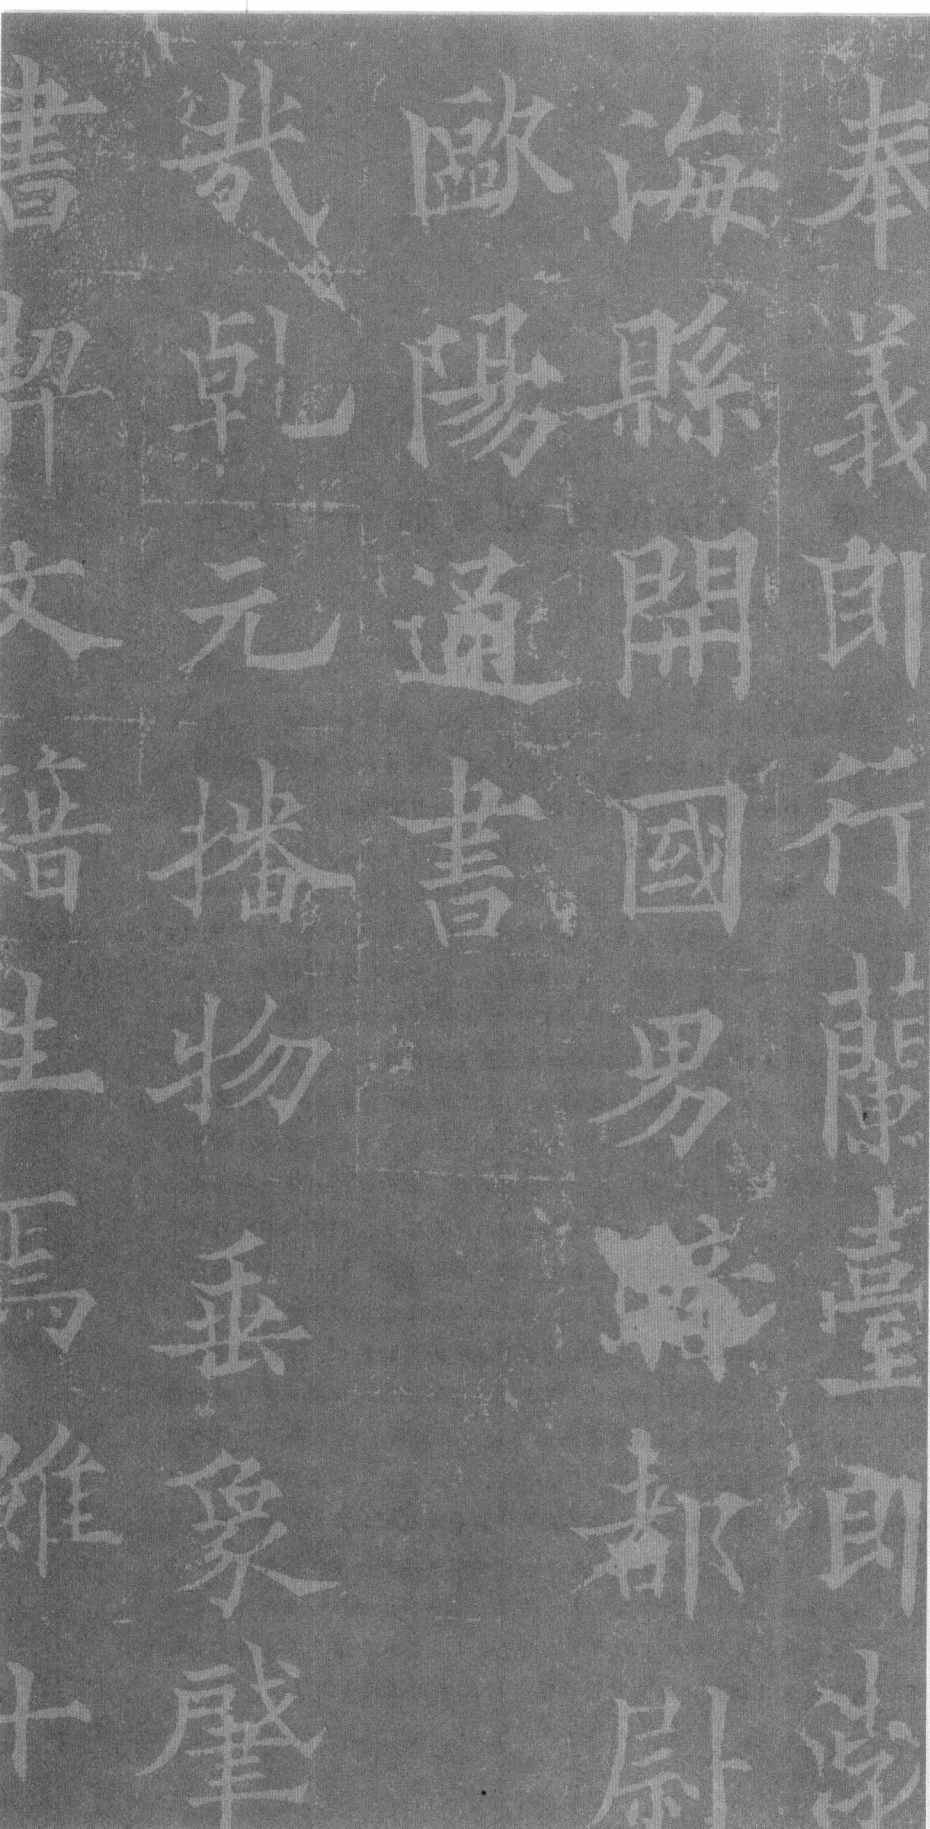 奉義郎行蘭臺郎渤
海縣開國男騎都尉
歐陽通書
哉乾元播物垂象肇
書契文籍生焉雖十